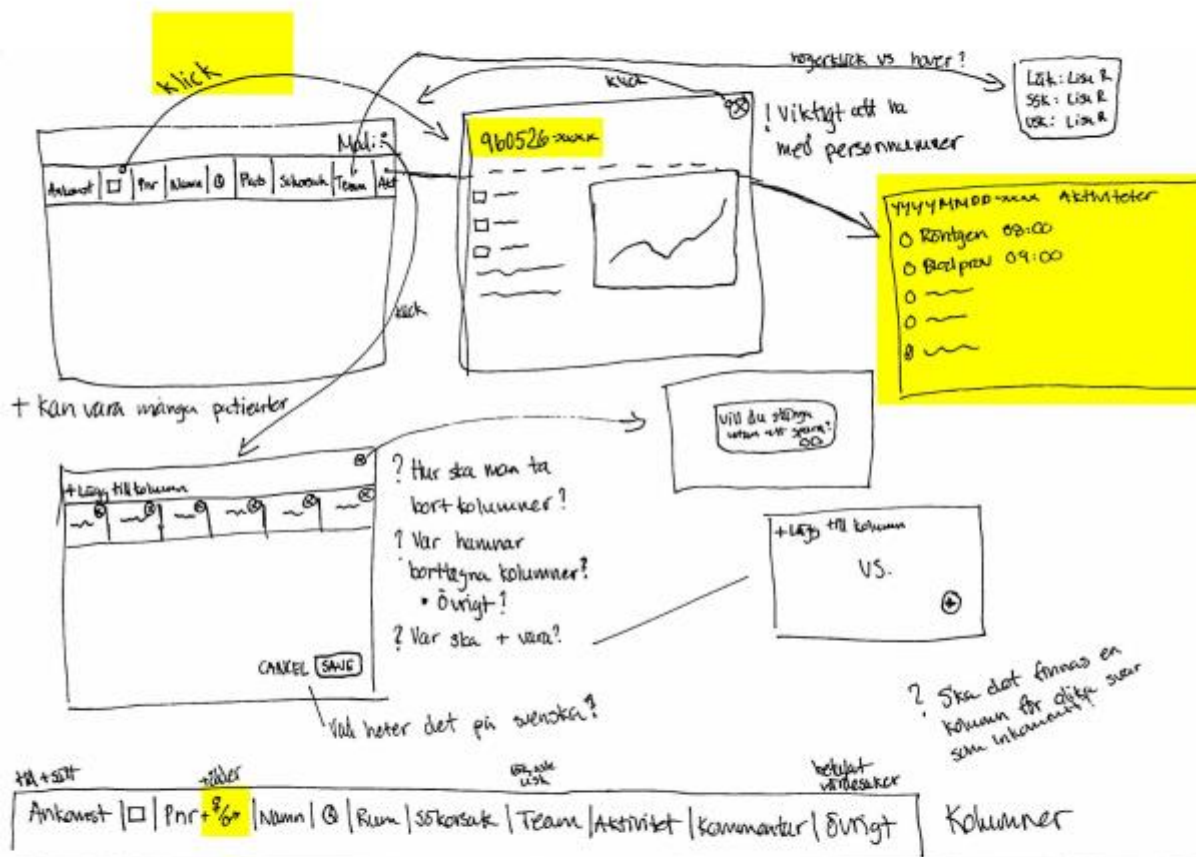 klick
högerklick vs hover?
klick
Läk: Lisa R
SSK: Lisa R
USK: Lisa R
! Viktigt att ha
med personnummer
960526-xxxx
Ankomst | Pnr | Namn | Plats | Sökorsak | Team | Akt
YYYYMMDD-xxxx Aktiviteter
Röntgen 08:00
Blodprov 09:00
klick
+ kan vara många patienter
Vill du stänga
utan att spara?
+ Lägg till kolumn
? Hur ska man ta
bort kolumner?
? Var hamnar
borttagna kolumner?
• Övrigt?
? Var ska + vara?
+ Lägg till kolumn
VS.
+
CANCEL SAVE
Vad heter det på svenska?
? Ska det finnas en
kolumn för olika svar
som inkommit
tid + sätt
+ ålder
betyfat
värdesaker
Ankomst | Pnr + | Namn | Rum | Sökorsak | Team | Aktivitet | Kommentar | Övrigt
Kolumner